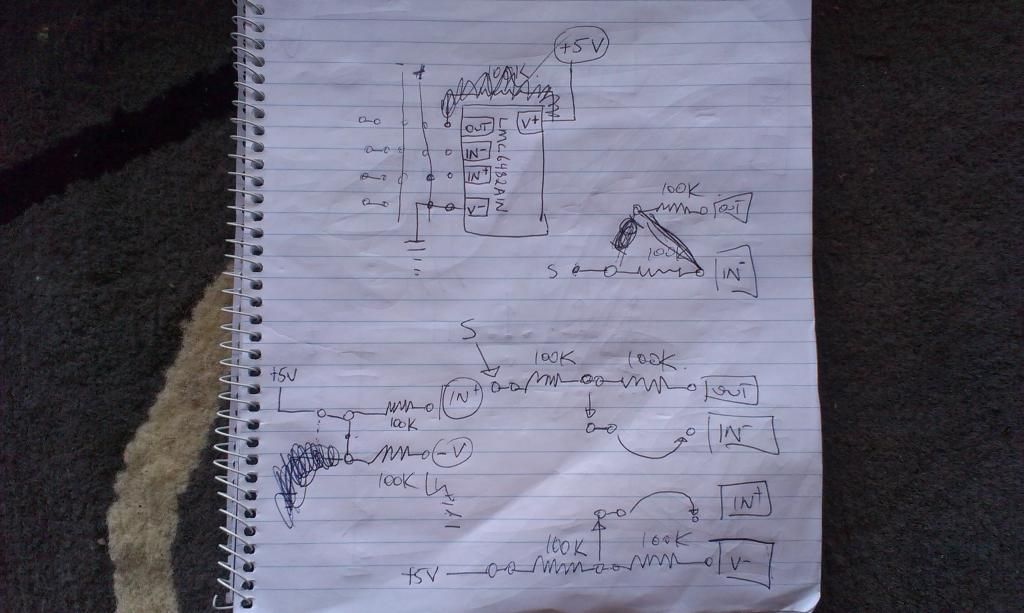 +5V
100K
OUT V+
IN-
IN+
V-
LMC6482AIN
100K OUT
100K
S IN-
S
+5V
100K 100K
IN+
OUT
100K
IN-
-V
100K
IN+
100K 100K
+5V V-